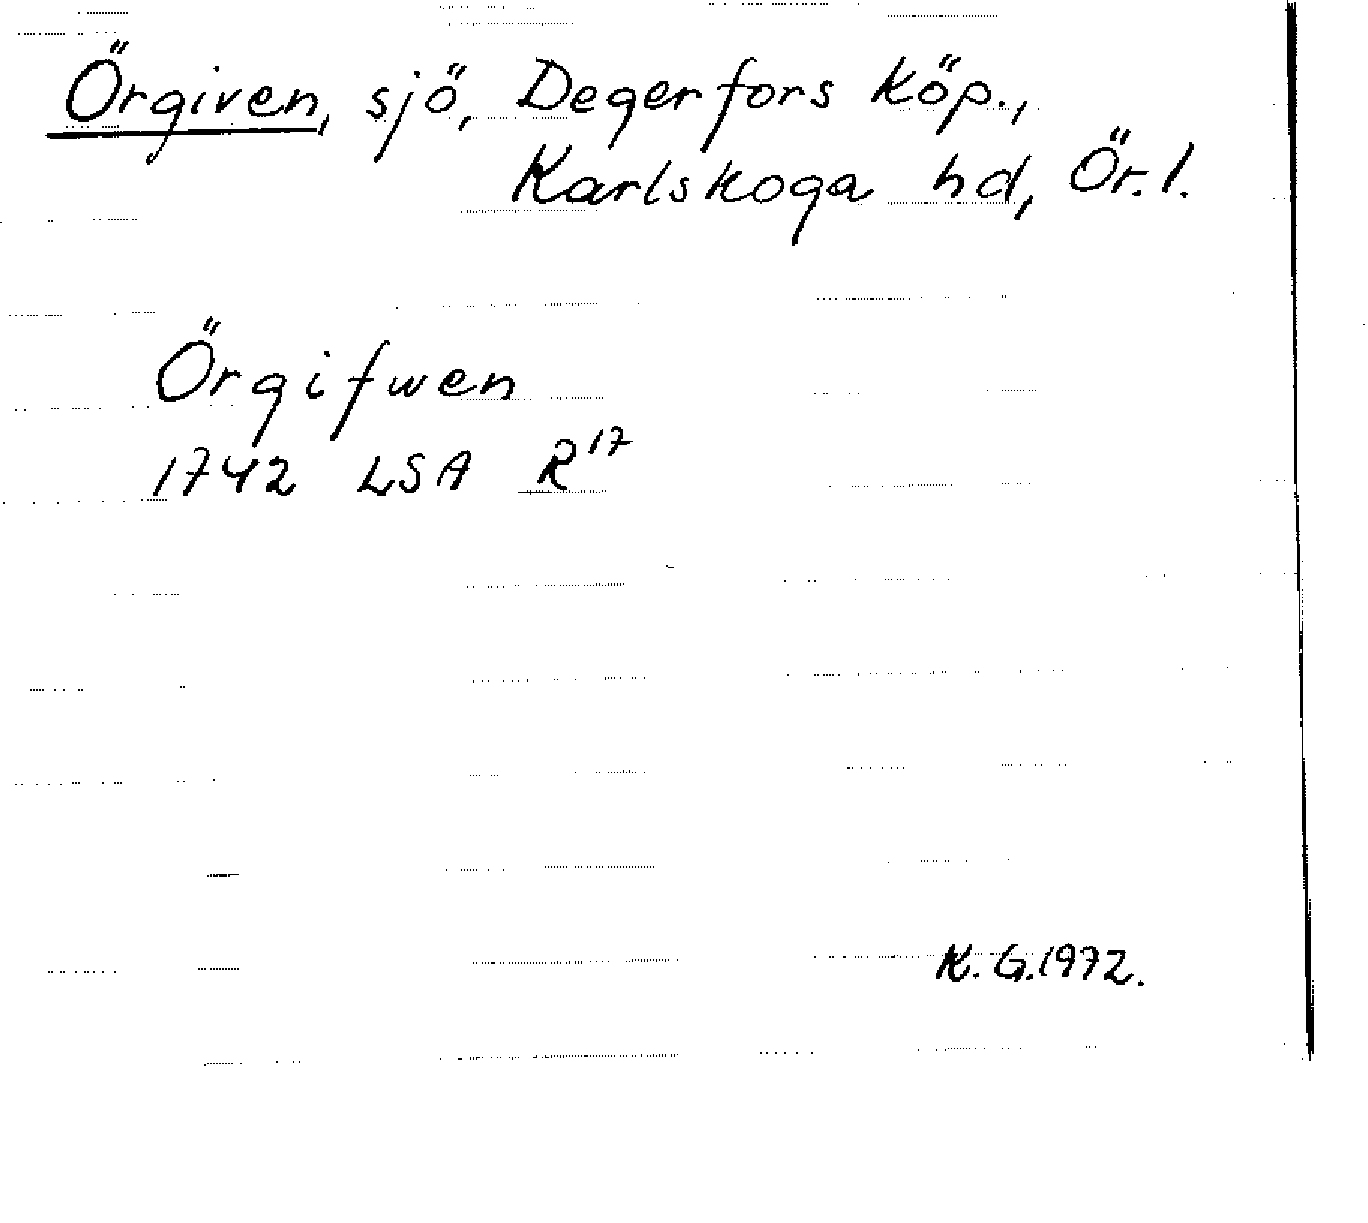 Örgiven, sjö, Degerfors köp.,
Karlskoga hd, Ör. l.
Örgifwen
1742 LSA R17
K. G. 1972.